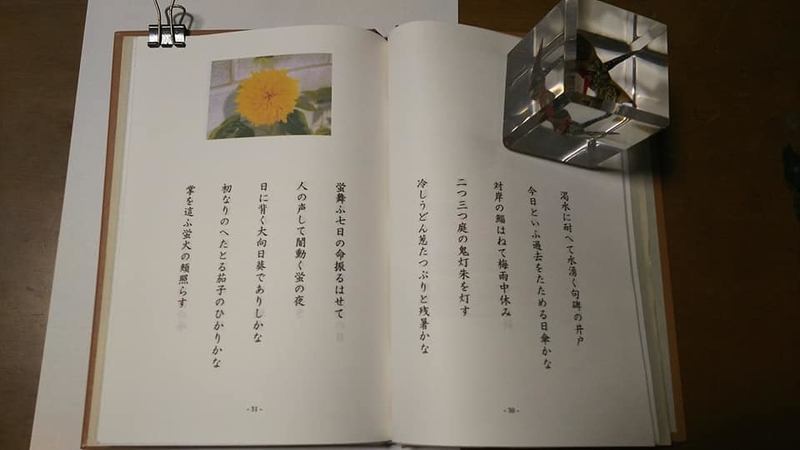 渇水に耐へて水湧く句碑の井戸
今日といふ過去をたためる日傘かな
対岸の鯔はねて梅雨中休み
二つ三つ庭の鬼灯朱を灯す
冷しうどん葱たつぷりと残暑かな
- 30 -
蛍舞ふ七日の命振るはせて
人の声して闇動く蛍の夜
日に背く大向日葵でありしかな
初なりのへたとる茄子のひかりかな
掌を這ふ蛍火の頬照らす
- 31 -